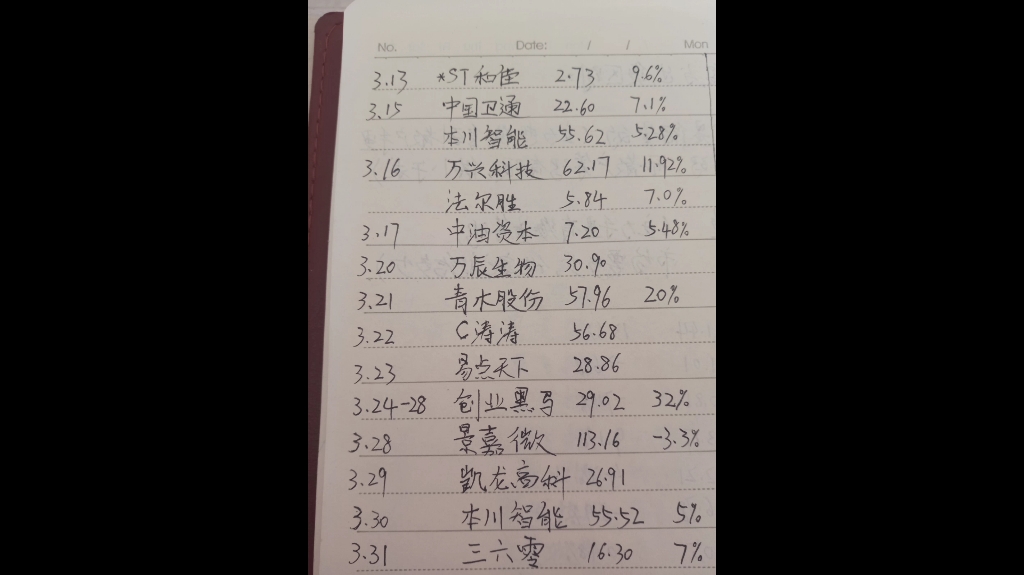 No. Date: / / Mon
3.13 *ST和佳 2.73 9.6%
3.15 中国卫通 22.60 7.1%
本川智能 55.62 5.28%
3.16 万兴科技 62.17 11.92%
法尔胜 5.84 7.0%
3.17 中油资本 7.20 5.48%
3.20 万辰生物 30.90
3.21 青木股份 57.96 20%
3.22 C涛涛 56.68
3.23 易点天下 28.86
3.24-28 创业黑马 29.02 32%
3.28 景嘉微 113.16 -3.3%
3.29 凯龙高科 26.91
3.30 本川智能 55.52 5%
3.31 三六零 16.30 7%